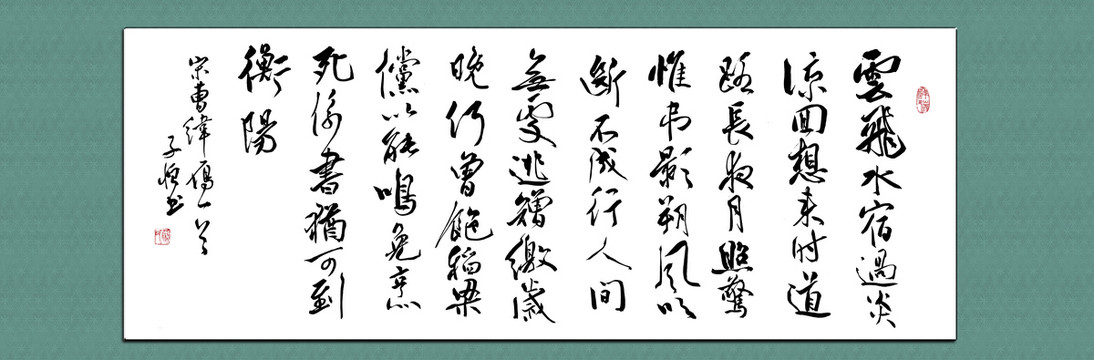 雲飛水宿過炎
涼回想來时道
路長夜月照驚
惟弔影朔风吹
斷不成行人间
無處逃矰繳歲
晚何曾飽稻粱
儻以能鳴免烹
死係書猶可到
衡陽
宋曹緯雁一首
子书